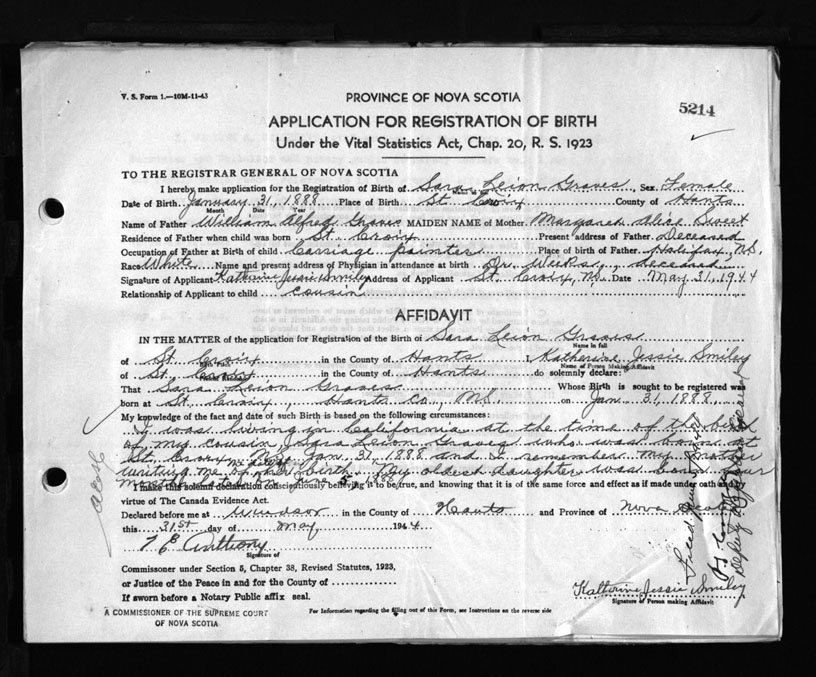 V. S. Form 1.—10M-11-43
PROVINCE OF NOVA SCOTIA
5214
APPLICATION FOR REGISTRATION OF BIRTH
Under the Vital Statistics Act, Chap. 20, R. S. 1923
TO THE REGISTRAR GENERAL OF NOVA SCOTIA
I hereby make application for the Registration of Birth of Sara Leion Graves, Sex Female
Date of Birth January 31, 1888 Place of Birth St. Croix County of Hants
Month Date Year
Name of Father William Alfred Graves MAIDEN NAME of Mother Margaret Alice Sweet
Residence of Father when child was born St. Croix Present address of Father Deceased
Occupation of Father at Birth of child Carriage painter Place of birth of Father Halifax, N.S.
Race White Name and present address of Physician in attendance at birth Dr. Weeks, deceased
Signature of Applicant Katherine Jessie Smiley Address of Applicant St. Croix, N.S. Date May 31, 1944
Relationship of Applicant to child cousin
AFFIDAVIT
IN THE MATTER of the application for Registration of the Birth of Sara Leion Graves
Name in full
of St. Croix in the County of Hants I, Katherine Jessie Smiley
Name of Person Making Affidavit
of St. Croix in the County of Hants do solemnly declare:
That Sara Leion Graves Whose Birth is sought to be registered was
born at St. Croix, Hants Co., N.S. on Jan. 31, 1888
My knowledge of the fact and date of such Birth is based on the following circumstances:
I was living in California at the time of the birth
of my cousin, Sara Leion Graves who was born at
St. Croix, N.S. Jan. 31, 1888 and I remember my mother
writing me of her birth. My oldest daughter was born four
months later on June 5, 1888
I make this solemn declaration conscientiously believing it to be true, and knowing that it is of the same force and effect as if made under oath by
virtue of The Canada Evidence Act.
Declared before me at Windsor in the County of Hants and Province of Nova Scotia
this 31st day of May 1944
Anthony
Signature of
Commissioner under Section 5, Chapter 38, Revised Statutes, 1923,
or Justice of the Peace in and for the County of
If sworn before a Notary Public affix seal.
Katherine Jessie Smiley
Signature of Person making Affidavit
A COMMISSIONER OF THE SUPREME COURT
OF NOVA SCOTIA
For Information regarding the filling out of this Form, see Instructions on the reverse side